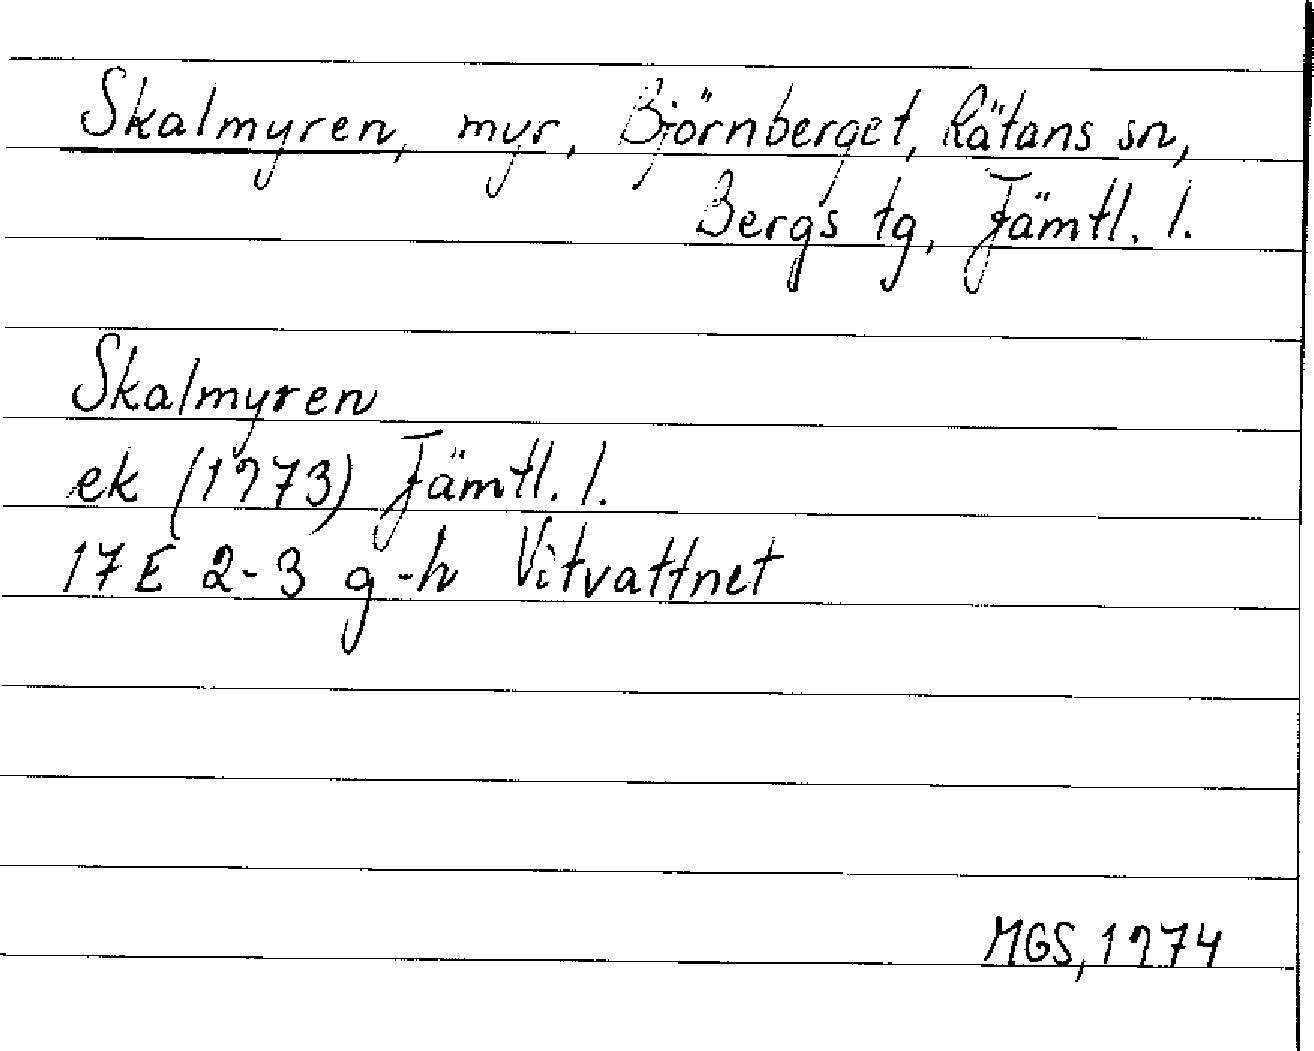 Skalmyren, myr, Björnberget, Rätans sn,
Bergs tg, Jämtl. l.
Skalmyren
ek (1973) Jämtl. l.
17 E 2-3 g-h Vitvattnet
MGS, 1974